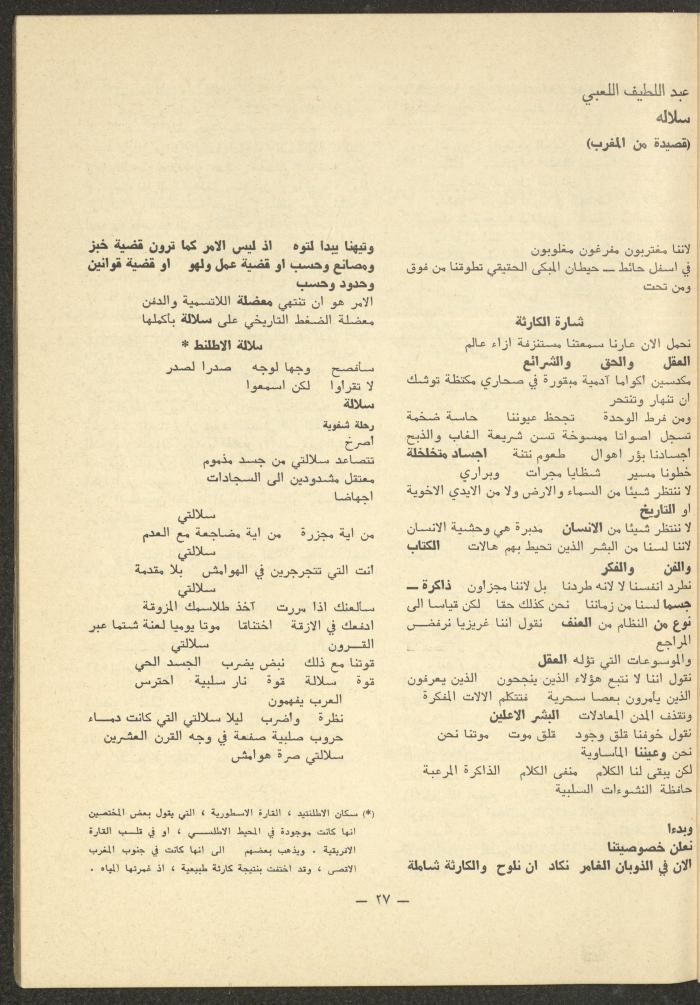 عبد اللطيف اللعبي
سلاله
(قصيدة من المغرب)
لاننا مغتربون مفرغون مغلوبون
في اسفل حائط — حيطان المبكى الحقيقي تطوقنا من فوق
ومن تحت
شارة الكارثة
نحمل الان عارنا سمعتنا مستنزفة ازاء عالم
العقل والحق والشرائع
مكدسين اكواما آدمية مبقورة في صحاري مكتظة توشك
ان تنهار وتنتحر
ومن فرط الوحدة تجحظ عيوننا حاسة ضخمة
تسجل اصواتا ممسوخة تسن شريعة الغاب والذبح
اجسادنا بؤر اهوال طعوم نتنة اجساد متخلخلة
خطونا مسير شظايا مجرات وبراري
لا ننتظر شيئا من السماء والارض ولا من الايدي الاخوية
او التاريخ
لا ننتظر شيئا من الانسان مدبرة هي وحشية الانسان
لاننا لسنا من البشر الذين تحيط بهم هالات الكتاب
والفن والفكر
نطرد انفسنا لا لانه طردنا بل لاننا مجزاون ذاكرة —
جسما لسنا من زماننا نحن كذلك حقا لكن قياسا الى
نوع من النظام من العنف نقول اننا غريزيا نرفض
المراجع
والموسوعات التي تؤله العقل
نقول اننا لا نتبع هؤلاء الذين ينجحون الذين يعرفون
الذين يأمرون بعصا سحرية فتتكلم الالات المفكرة
وتقذف المدن المعادلات البشر الاعلين
نقول خوفنا قلق وجود قلق موت موتنا نحن
نحن وعيننا المأساوية
لكن يبقى لنا الكلام منفى الكلام الذاكرة المرعبة
حافظة النشوءات السلبية
وبدءا
نعلن خصوصيتنا
الان في الذوبان الغامر نكاد ان نلوح والكارثة شاملة
وتيهنا يبدا لتوه اذ ليس الامر كما ترون قضية خبز
ومصانع وحسب او قضية عمل ولهو او قضية قوانين
وحدود وحسب
الامر هو ان تنتهي معضلة اللاتسمية والدفن
معضلة الضغط التاريخي على سلالة بأكملها
سلالة الاطلنط *
سأفصح وجها لوجه صدرا لصدر
لا تقراوا لكن اسمعوا
سلالة
رحلة شفوية
اصرخ
تتصاعد سلالتي من جسد مذموم
معتقل مشدودين الى السجادات
اجهاضا
سلالتي
من اية مجزرة من اية مضاجعة مع العدم
سلالتي
انت التي تتجرجرين في الهوامش بلا مقدمة
سلالتي
سألعنك اذا مررت آخذ طلاسمك المزوقة
ادفعك في الازقة اختناقا موتا يوميا لعنة شتما عبر
القرون سلالتي
قوتنا مع ذلك نبض يضرب الجسد الحي
قوة سلالة قوة نار سلبية احترس
العرب يفهمون
نظرة واضرب ليلا سلالتي التي كانت دماء
حروب صليبية صفعة في وجه القرن العشرين
سلالتي صرة هوامش
(*) سكان الاطلنتيد ، القارة الاسطورية ، التي يقول بعض المختصين
انها كانت موجودة في المحيط الاطلسي ، او في قلب القارة
الافريقية . ويذهب بعضهم الى انها كانت في جنوب المغرب
الاقصى ، وقد اختفت بنتيجة كارثة طبيعية ، اذ غمرتها المياه .
— ٢٧ —